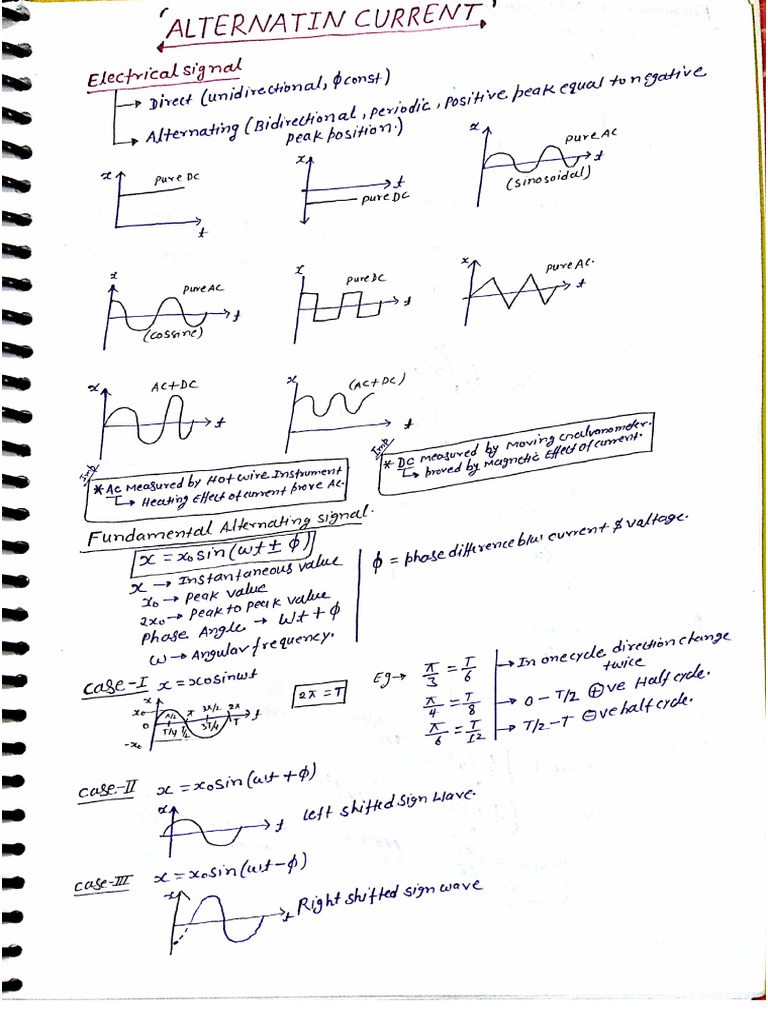 'ALTERNATIN CURRENT'
Electrical signal
→ Direct (unidirectional, ϕ const)
→ Alternating (Bidirectional, periodic, Positive peak equal to negative
peak position.)
x pure DC t
x t pure DC
x pure AC t (sinosoidal)
x pure AC t (cossine)
x pure DC t
x pure AC. t
x AC+DC t
x (AC+DC) t
Imp
* AC measured by Hot wire Instrument
↳ Heating Effect of current prove AC.
Imp
* DC measured by Moving Gnalvanometer.
↳ proved by Magnetic Effect of current.
Fundamental Alternating signal.
x = x₀ sin(ωt ± ϕ)
x → Instantaneous value
x₀ → Peak value
2x₀ → Peak to peak value
Phase Angle → ωt + ϕ
ω → Angular frequency.
ϕ = phase difference b/w current & valtage.
Case-I x = x₀ sinωt
x x₀ 0 -x₀ π/2 π 3π/2 2π T/4 T/2 3T/4 T t
2π = T
Eg → π/3 = T/6
π/4 = T/8
π/6 = T/12
→ In one cycle direction change
twice
→ 0 - T/2 ⊕ve Half cycle.
→ T/2 - T ⊖ve half cycle.
Case-II x = x₀ sin(ωt + ϕ)
x t Left shifted sign wave.
Case-III x = x₀ sin(ωt - ϕ)
x t Right shifted sign wave